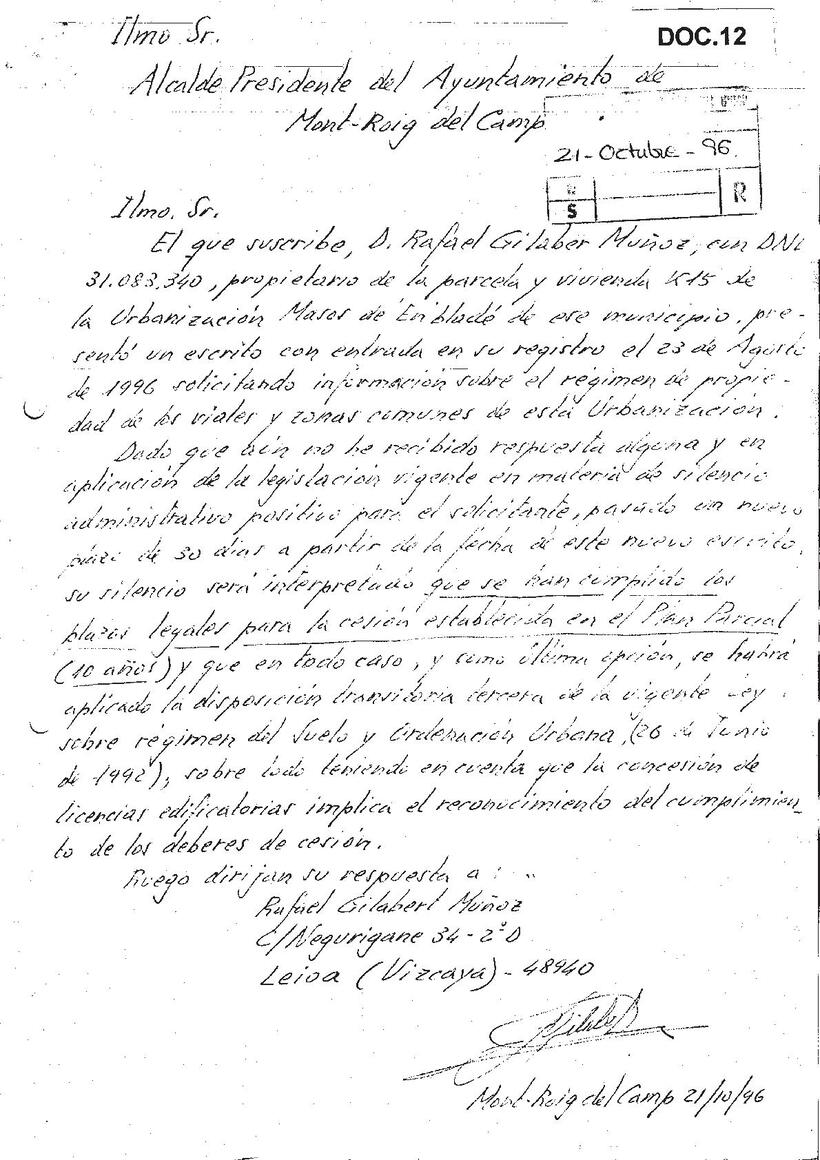 Ilmo Sr.
DOC.12
Alcalde Presidente del Ayuntamiento de
Mont-Roig del Camp
21-Octubre-96.
S
R
Ilmo. Sr.
El que suscribe, D. Rafael Gilaber Muñoz, con DNI
31.083.340, propietario de la parcela y vivienda K15 de
la Urbanización Masos de Enbladé de ese municipio, pre-
sentó un escrito con entrada en su registro el 23 de Agosto
de 1996 solicitando información sobre el régimen de propie-
dad de los viales y zonas comunes de esta Urbanización.
Dado que aún no he recibido respuesta alguna y en
aplicación de la legislación vigente en materia de silencio
administrativo positivo para el solicitante, pasado un nuevo
plazo de 30 días a partir de la fecha de este nuevo escrito,
su silencio será interpretado que se han cumplido los
plazos legales para la cesión establecida en el Plan Parcial
(10 años) y que en todo caso, y como última opción, se habrá
aplicado la disposición transitoria tercera de la vigente Ley
sobre régimen del Suelo y Ordenación Urbana, (26 de Junio
de 1992), sobre todo teniendo en cuenta que la concesión de
licencias edificatorias implica el reconocimiento del cumplimien_
to de los deberes de cesión.
Ruego dirijan su respuesta a:
Rafael Gilabert Muñoz
C/Negurigane 34-2º D
Leioa (Vizcaya) - 48940
Gilabert
Mont-Roig del Camp 21/10/96